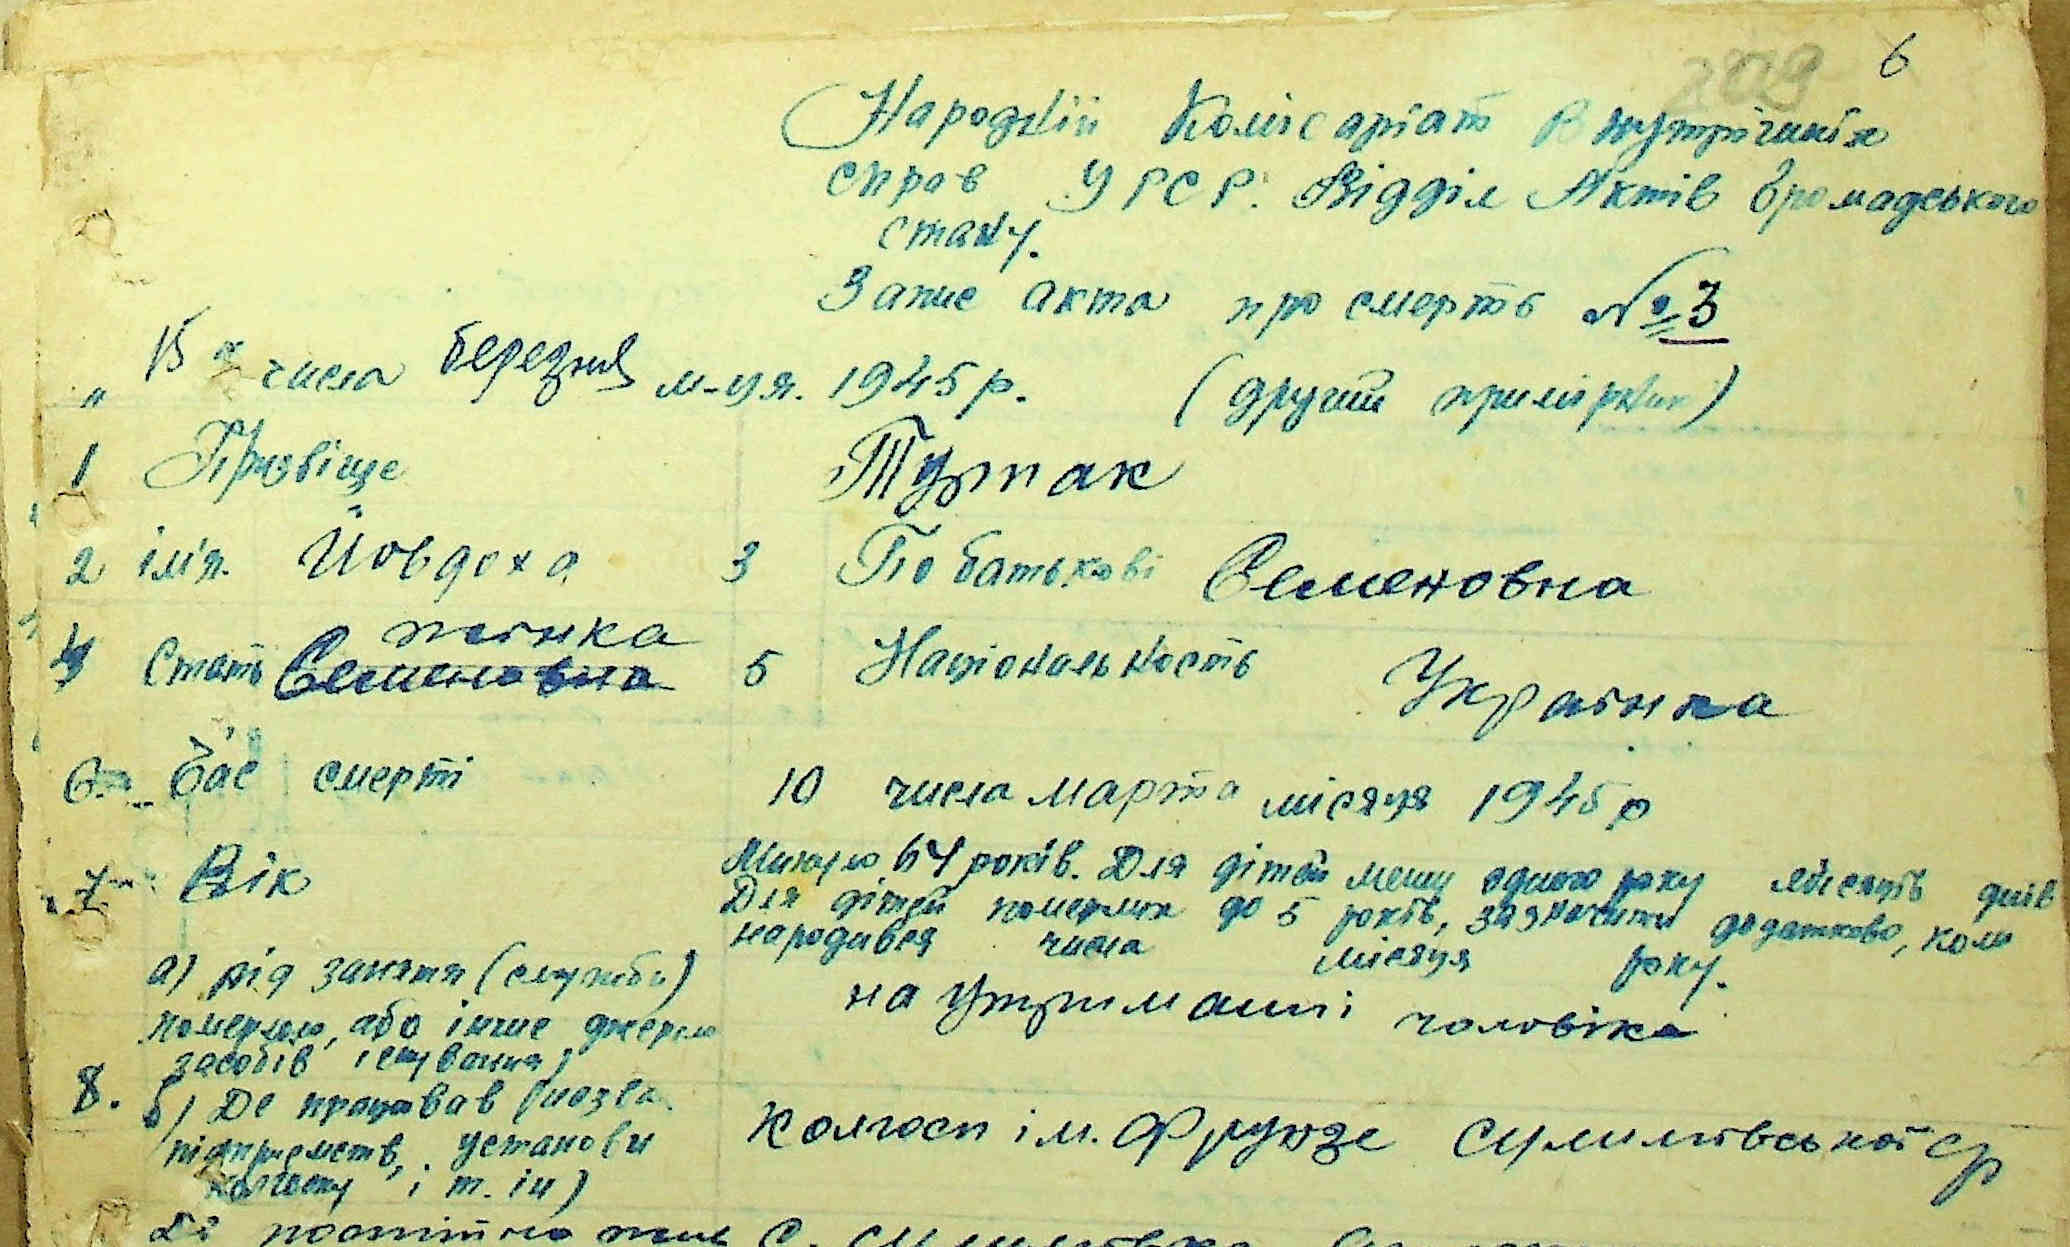 209 6
Народній Комісаріат Внутрішніх
справ УРСР. Відділ Актів Громадського
стану.
Запис акта про смерть №3
„15" числа березня м-ця. 1945р. (другий примірник)
1 Призвіще Турпак
2 ім'я. Йовдоха 3 По батькові Семеновна
жінка
4 Стать Семеновна 5 Національность Українка
6 Час смерті 10 числа марта місяця 1945 р
7 Вік Минуло 64 років. Для дітей менш одного року місяців днів
Для дітей померлих до 5 років, зазначити додатково, коли
народився числа місяця року.
а) рід заняття (служби)
померлого, або інше джерело
засобів існування) на утриманні чоловіка
8. б) Де працював (назва
підприємств, установи
колгоспу і т. ін) колгосп ім. Фрунзе
Де постійно С.